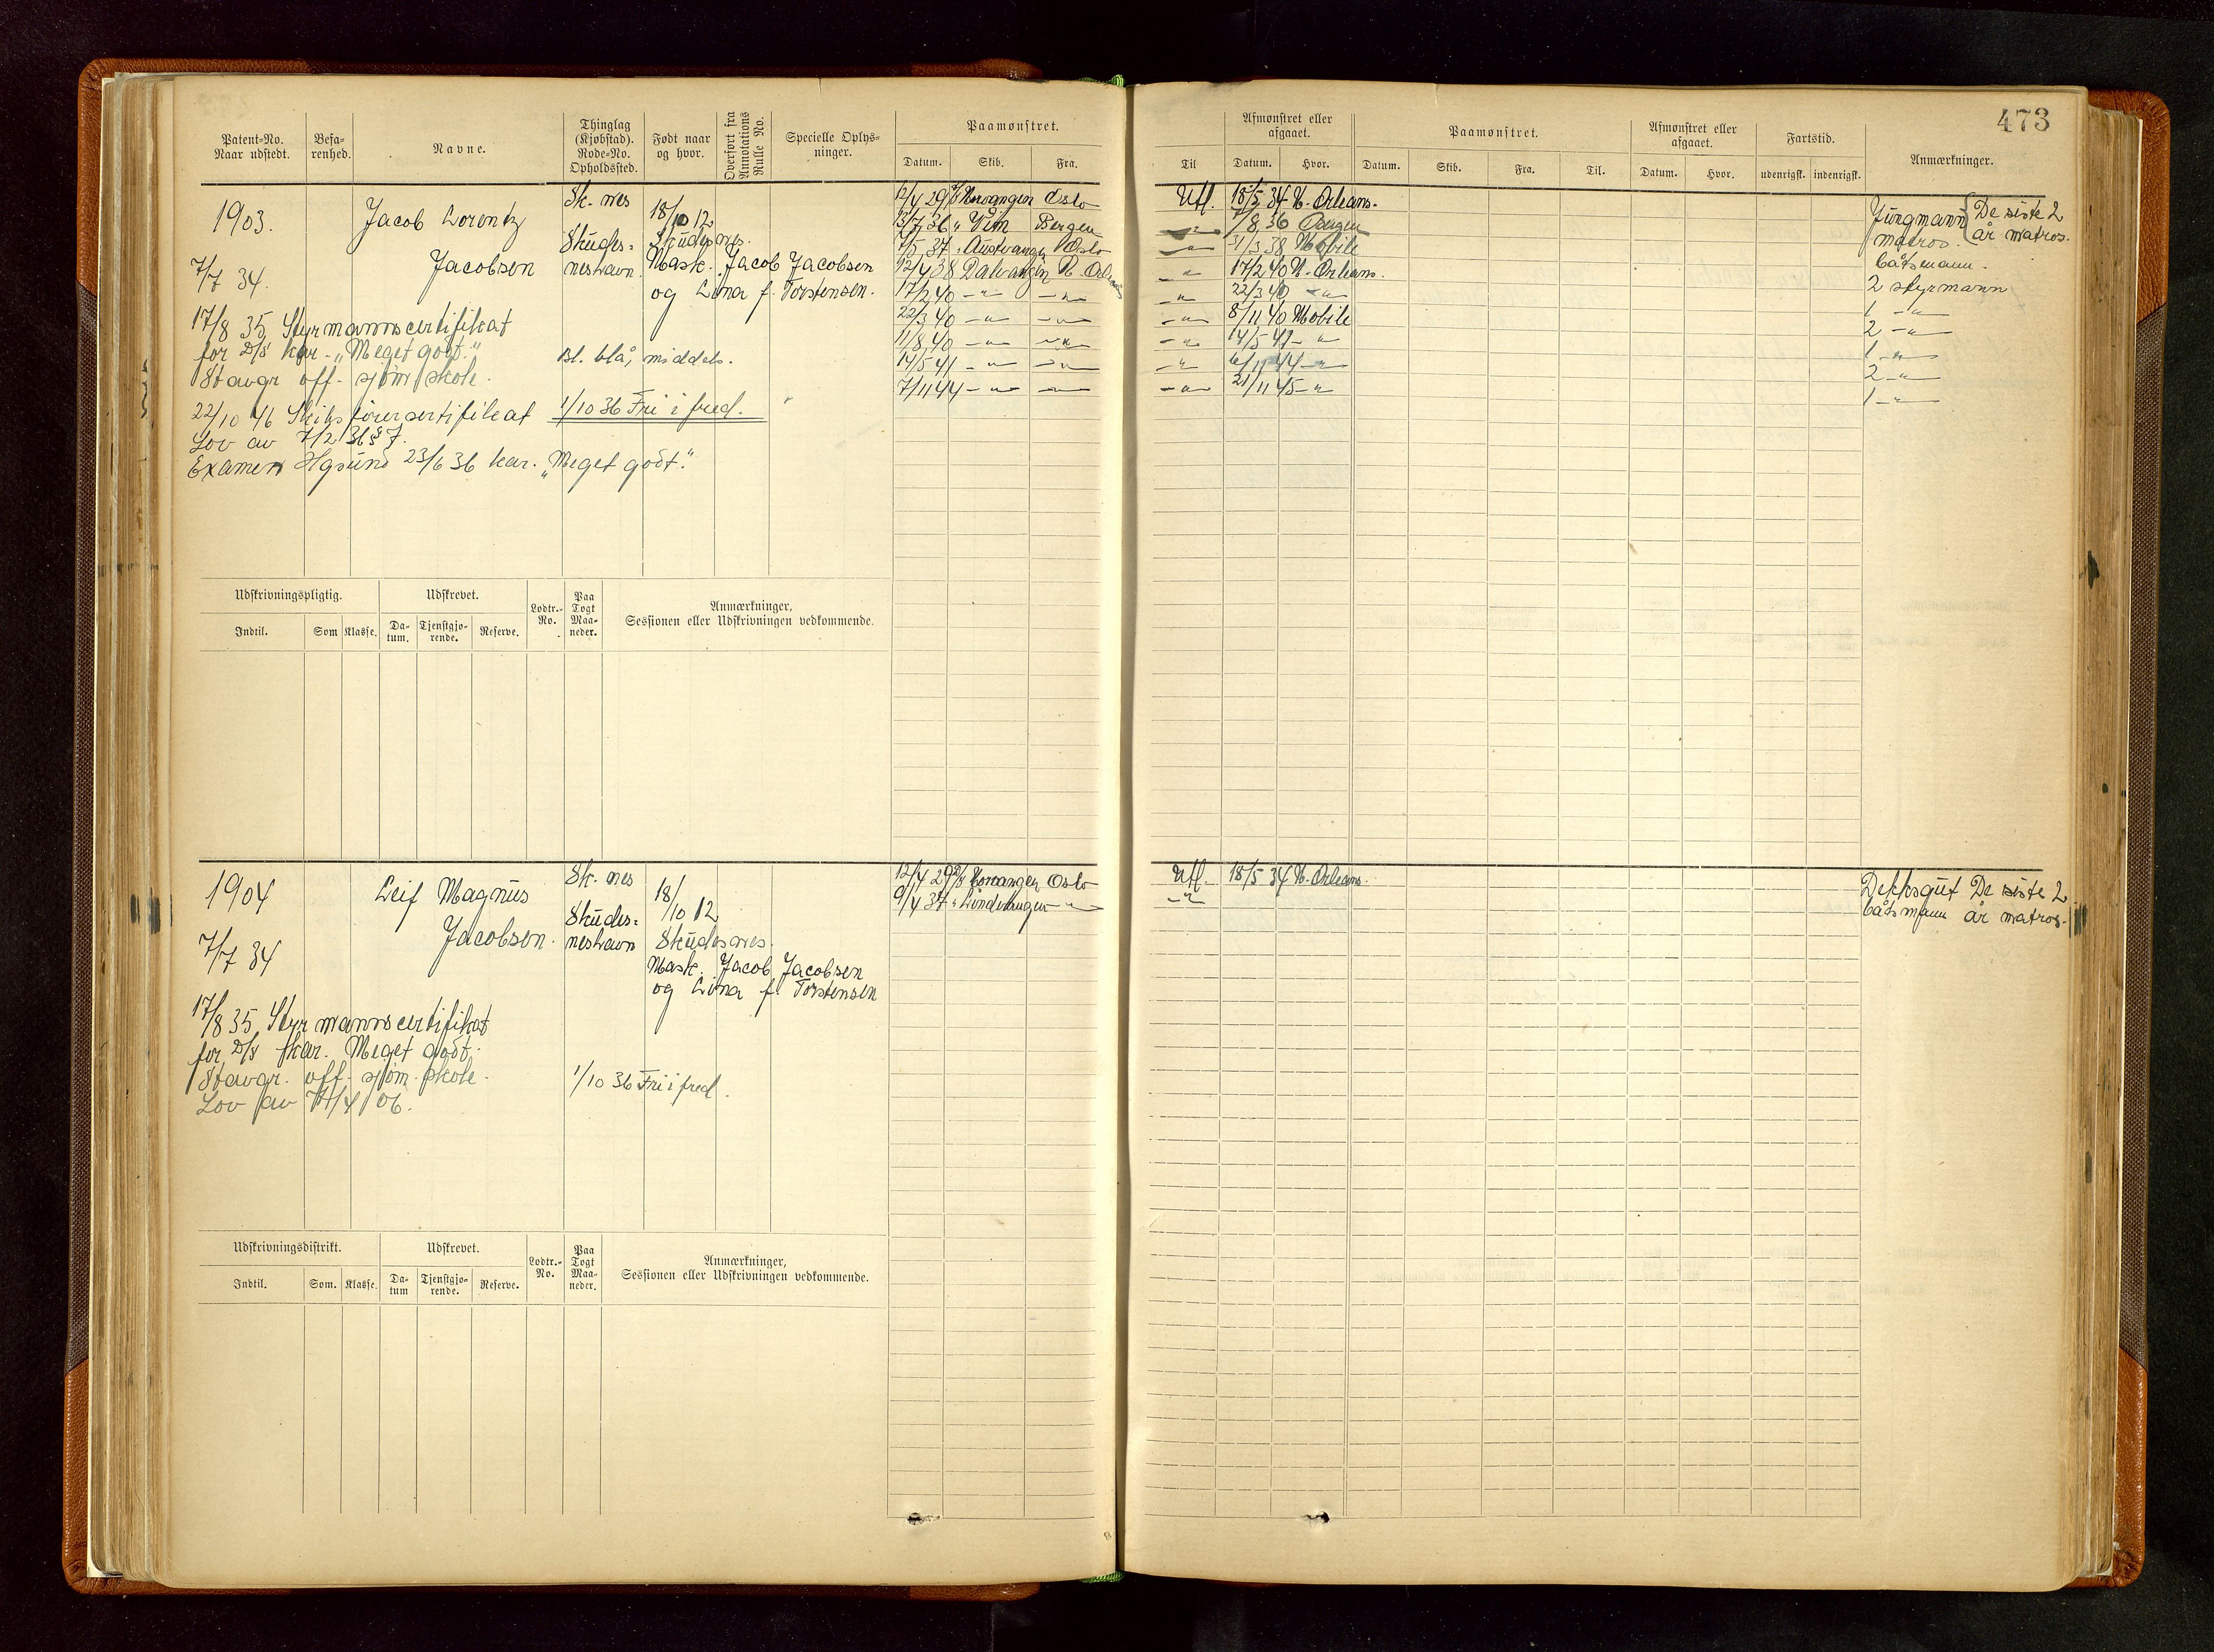 473
Patent=No. Naar udstedt.
Befa=renhed.
Navne.
Thinglag (Kjøbstad). Rode=No. Opholdssted.
Født naar og hvor.
Overført fra Annotations Rulle No.
Specielle Oplys=ninger.
Paamønstret.
Datum. Skib. Fra.
Til
Afmønstret eller afgaaet.
Datum. Hvor.
Paamønstret.
Datum. Skib. Fra. Til.
Afmønstret eller afgaaet.
Datum. Hvor.
Fartstid.
udenrigsk. indenrigsk.
Anmærkninger.
1903.
7/7 34.
Jacob Lorentz
Jacobsen
Sk. nes
Skudes=
neshavn
18/10 12
Skudesnes.
Mask. Jacob Jacobsen
og Lina f. Torstensen.
17/8 35 Styrmannscertifikat
for D/S kar. "Meget godt."
Stavgr off. sjøm skole.
Bl. blå, middels.
22/10 46 Skibsførersertifikat
1/10 36 Fri i fred.
Lov av 7/2 36 § 7.
Examen Hgsund 23/6 36 kar. "Meget godt."
12/4 29 Oslo Utl. 18/5 34 N. Orleans. Jungmann De siste 2
13/7 36 " Vim Bergen -"- 7/8 36 Bergen matros. år matros.
7/5 37 " Austvangen Oslo -"- 31/3 38 Mobile båtsmann.
12/4 38 Dalvangen N. Orleans -"- 17/2 40 N. Orleans. 2 styrmann
17/2 40 -"- -"- -"- 22/3 40 -"- 1 -"-
22/3 40 -"- -"- -"- 8/11 40 Mobile 2 -"-
11/8 40 -"- -"- -"- 14/5 41 -"- 1 -"-
14/5 41 -"- -"- -"- 6/11 44 -"- 2 -"-
7/11 44 -"- -"- -"- 21/11 45 -"- 1 -"-
Udskrivningspligtig.
Indtil. Som Klasse.
Udskrevet.
Da=tum. Tjenstgjø=rende. Reserve.
Lodtr.=No.
Paa Togt Maa=neder.
Anmærkninger,
Sessionen eller Udskrivningen vedkommende.
1904
7/7 34
Leif Magnus
Jacobsen.
Sk. nes
Skudes=
neshavn
18/10 12
Skudesnes.
Mask. Jacob Jacobsen
og Lina f. Torstensen
12/4 29 Oslo Utl. 18/5 34 N. Orleans. Dekksgut De siste 2
9/4 37 " Lindvangen -"- -"- båtsmann år matros.
17/8 35 Styrmannscertifikat
for D/S kar. Meget godt.
Stavgr. off. sjøm. skole.
1/10 36 Fri i fred.
Udskrivningsdistrikt.
Indtil. Som. Klasse.
Udskrevet.
Da=tum Tjenstgjø=rende. Reserve.
Lodtr.=No.
Paa Togt Maa=neder.
Anmærkninger,
Sessionen eller Udskrivningen vedkommende.